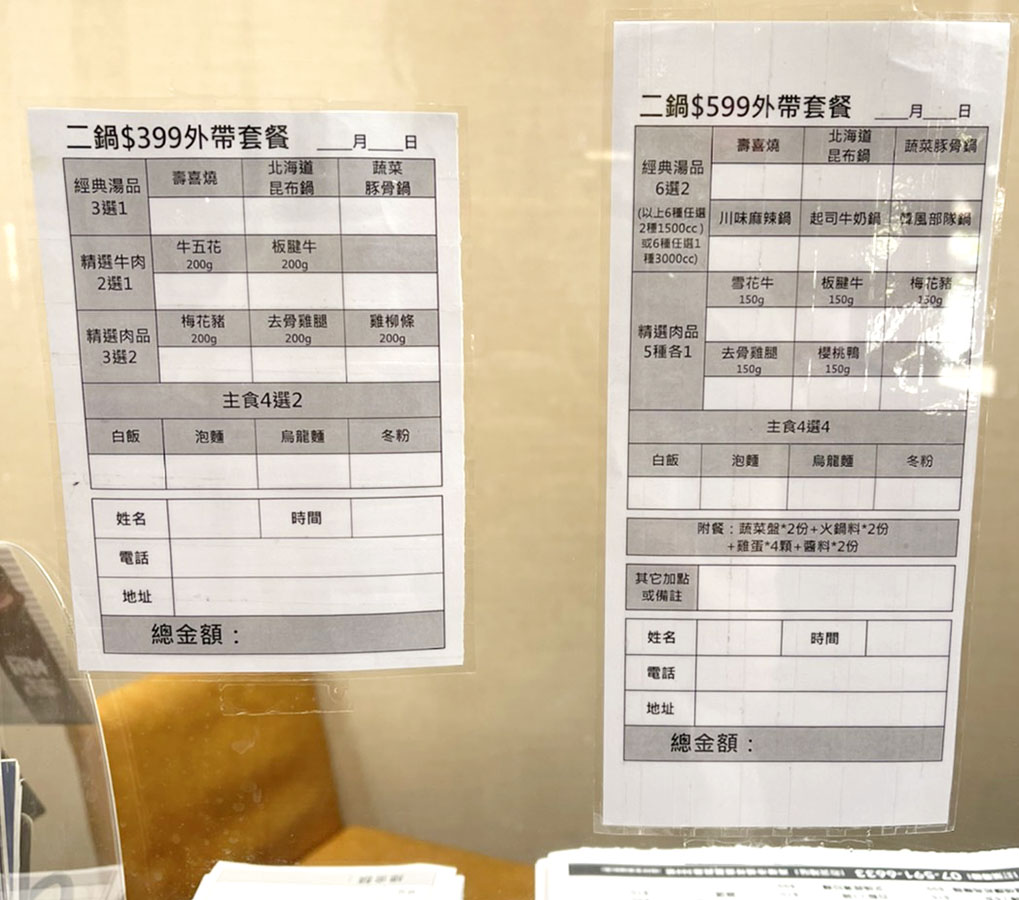 二鍋$399外帶套餐 ___月___日
經典湯品
3選1
壽喜燒
北海道
昆布鍋
蔬菜
豚骨鍋
精選牛肉
2選1
牛五花
200g
板腱牛
200g
精選肉品
3選2
梅花豬
200g
去骨雞腿
200g
雞柳條
200g
主食4選2
白飯 泡麵 烏龍麵 冬粉
姓名 時間
電話
地址
總金額：
二鍋$599外帶套餐 ___月___日
經典湯品
6選2
(以上6種任選
2種1500cc)
或6種任選1
種3000cc)
壽喜燒
北海道
昆布鍋
蔬菜豚骨鍋
川味麻辣鍋 起司牛奶鍋 韓風部隊鍋
精選肉品
5種各1
雪花牛
150g
板腱牛
150g
梅花豬
150g
去骨雞腿
150g
櫻桃鴨
150g
主食4選4
白飯 泡麵 烏龍麵 冬粉
附餐：蔬菜盤*2份+火鍋料*2份
+雞蛋*4顆+醬料*2份
其它加點
或備註
姓名 時間
電話
地址
總金額：
總金額：
07-591-6633